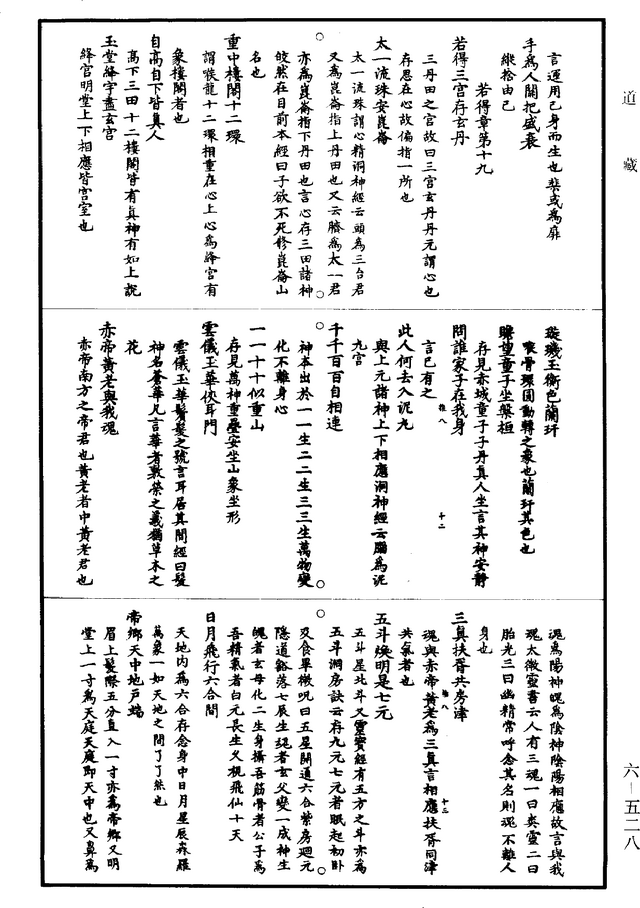 道藏
言運用己身而生也或為扉
手為人關把盛衰
縱捨由己
若得章第十九
若得三宮存玄丹
三丹田之宮故曰三宮玄丹丹元謂心也
存思在心故偏指一所也
太一流珠安崑崙
太一流珠謂心精洞神經云頭為三台君
又為崑崙指上丹田也又云臍為太一君
亦為崑崙指下丹田也言心存三田諸神
皎然在目前本經曰子欲不死修崑崙山
名也
重中樓閣十二環
謂喉嚨十二環相重在心上心為絳宮有
象樓閣者也
自高自下皆真人
高下三田十二樓閣皆有真神有如上說
玉堂絳宇盡玄宮
絳宮明堂上下相應皆宮室也
璇璣玉衡色蘭玕
喉骨環圓動轉之象也蘭玕其色也
瞻望童子坐槃桓
存見赤城童子子丹真人坐言其神安靜
問誰家子在我身
言己有之
此人何去入泥丸
與上元諸神上下相應洞神經云腦為泥
九宮
千千百百自相連
神本出於一一生二二生三三生萬物變
化不離身心
一一十十似重山
存見萬神重疊安坐山象坐形
雲儀玉華俠耳門
雲儀玉華鬢髮之號言耳居其間經曰髮
神名蒼華凡言華者敷榮之義猶草木之
花
赤帝黃老與我魂
赤帝南方之帝君也黃老者中黃老君也
魂為陽神魄為陰神陰陽相應故言與我
魂太微靈書云人有三魂一曰爽靈二曰
胎光三曰幽精常呼念其名則魂不離人
身也
三真扶胥共房津
魂與赤帝黃老為三真言相應扶胥同津
共氣者也
五斗煥明是七元
五斗星北斗又靈寶經有五方之斗亦為
五斗洞房訣云存九元七元者眠起初臥
及食畢微呪曰五星開通六合紫房迴元
隱道豁落七辰生魂者玄父變一成神生
魄者玄母化二生身攝吾筋骨者公子為
吾精氣者白元長生久視飛仙十天
日月飛行六合間
天地內為六合存念身中日月星辰森羅
萬象一如天地之間了了然也
帝鄉天中地戶端
眉上髮際五分直入一寸亦為帝鄉又明
堂上一寸為天庭天庭即天中也又鼻為
六－五二八